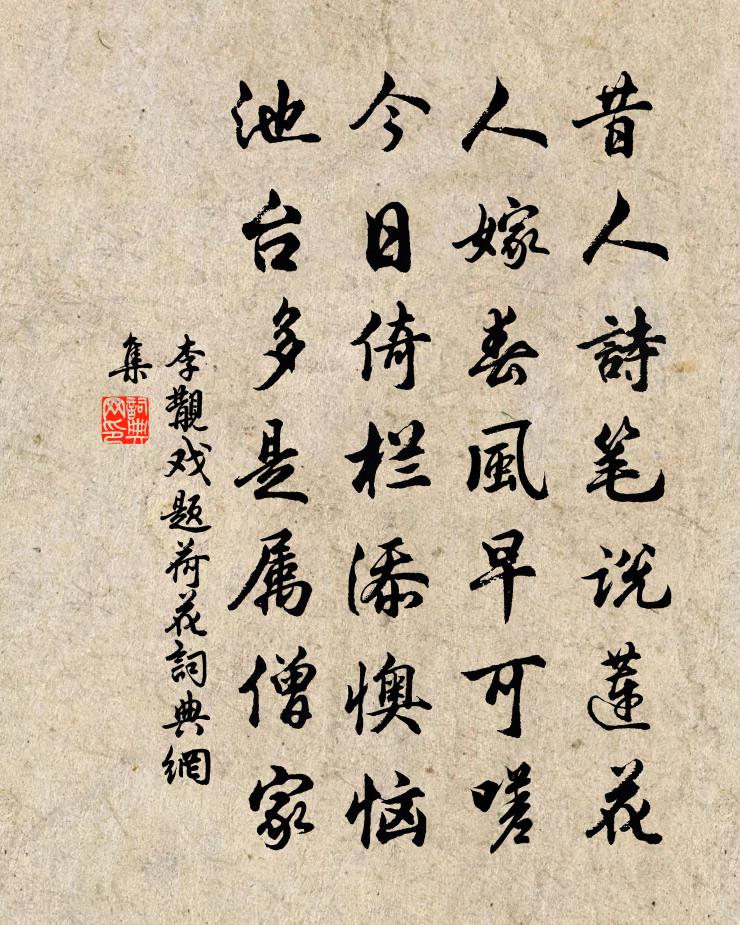 昔人詩笔说蓮花
人嫁春風早可嗟
今日倚栏添懊恼
池台多是属僧家
李觏戏题荷花詞典網
集
詞典
网印